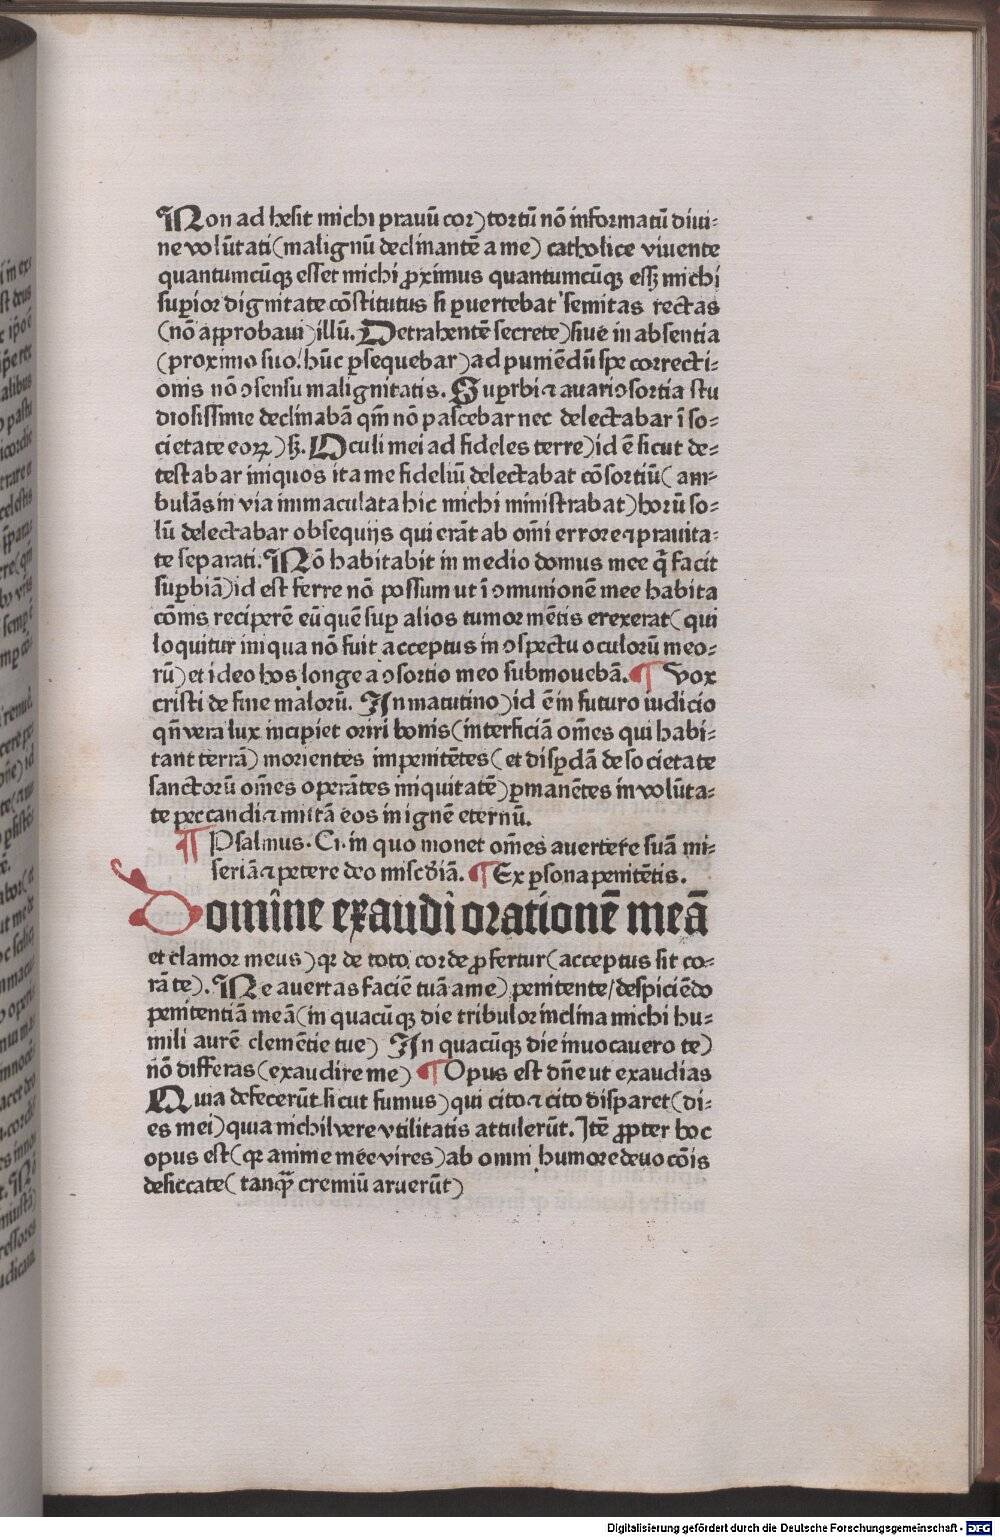 Non ad hesit michi prauū cor) tortū nō informatū diui⸗
ne volūtati(malignū declinantē a me) catholice viuente
quantumcūqꝫ esset michi ꝓximus quantumcūqꝫ essꝫ michi
suꝑior dignitate cōstitutus si ꝑuertebat semitas rectas
(nō approbaui)illū. Detrahentē secrete)siue in absentia
(proximo suo. hūc ꝑsequebar)ad puniēdū spe correcti⸗
onis nō ꝯsensu malignitatis. Suꝑbi ⁊ auari ꝯsortia stu
diosissime declinabā qm̄ nō pascebar nec delectabar ī so⸗
cietate eoꝝ)sꝫ. Oculi mei ad fideles terre)id ē sicut de⸗
testabar iniquos ita me fideliū delectabat cōsortiū( am⸗
bulās in via immaculata hic michi ministrabat)horū so⸗
lū delectabar obsequijs qui erāt ab om̄i errore ⁊ prauita⸗
te separati. Nō habitabit in medio domus mee q̄ facit
suꝑbiā)id est ferre nō possum ut ī ꝯmunionē mee habita
cōnis reciperē eū quē suꝑ alios tumor mētis erexerat( qui
loquitur iniqua nō fuit acceptus in ꝯspectu oculorū meo⸗
rū)et ideo hos longe a ꝯsortio meo submouebā. ¶ Vox
cristi de fine malorū. In matutino)id ē in futuro iudicio
qn̄ vera lux incipiet oriri bonis(interficiā om̄es qui habi⸗
tant terrā) morientes impenitētes( et disꝑdā de societate
sanctorū om̄es operātes iniquitatē)ꝑmanētes in volūta⸗
te peccandi ⁊ mittā eos in ignē eternū.
¶ Psalmus. Ci. in quo monet om̄es auertere suā mi⸗
seriā ⁊ petere deo misc̄diā. ¶ Ex ꝑsona penitētis.
Domine exaudi orationē meā
et clamor meus)qꝛ de toto corde ꝓfertur(acceptus sit co⸗
rā te). Ne auertas faciē tuā a me) penitente/despiciēdo
penitentiā meā(in quacūqꝫ die tribulor inclina michi hu⸗
mili aurē clemētie tue) In quacūqꝫ die inuocauero te)
nō differas(exaudire me) ¶ Opus est dn̄e ut exaudias
Quia defecerūt sicut fumus)qui cito ⁊ cito disparet(di⸗
es mei)quia nichil vere vtilitatis attulerūt. Itē ꝓpter hoc
opus est(qꝛ anime mee vires)ab omni humore deuocōis
desiccate( tanqͣꝫ cremiū aruerūt)
Digitalisierung gefördert durch die Deutsche Forschungsgemeinschaft - DFG